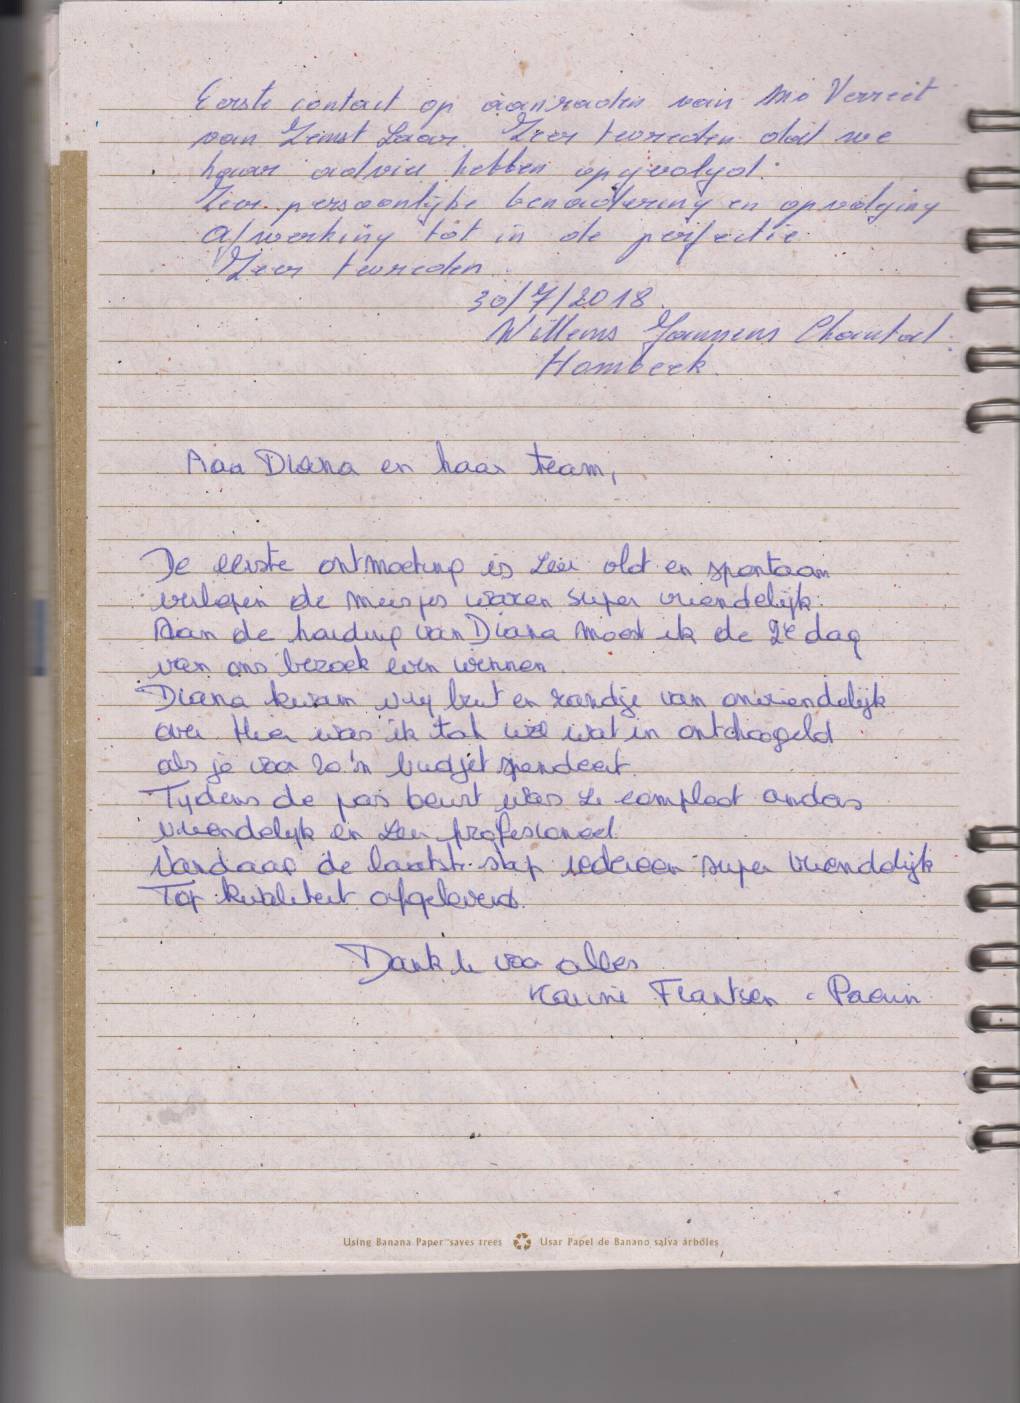 Eerste contact op aanraden van Mo Verreet
van Zemst Laar. Zeer tevreden dat we
haar advies hebben opgevolgd.
Zeer persoonlijke benadering en opvolging
Afwerking tot in de perfectie.
Zeer tevreden.
30/7/2018.
Willems Janssens Chantal.
Hombeek.
Aan Diana en haar team,
De eerste ontmoeting is zeer vlot en spontaan
verlopen de meisjes waren super vriendelijk.
Aan de houding van Diana moest ik de 2e dag
van ons bezoek even wennen.
Diana kwam vrij bruut en randje van onvriendelijk
over. Hier was ik toch wel wat in ontchoogeld
als je voor zo'n budjet spendeert.
Tijdens de pas beurt was ze compleet anders
vriendelijk en zeer profesioneel.
Vandaag de laatste stap iedereen super vriendelijk
Top kwaliteit afgeleverd.
Dank u voor alles
Karine Frantsen - Paeuin
Using Banana Paper saves trees Usar Papel de Banano salva árboles